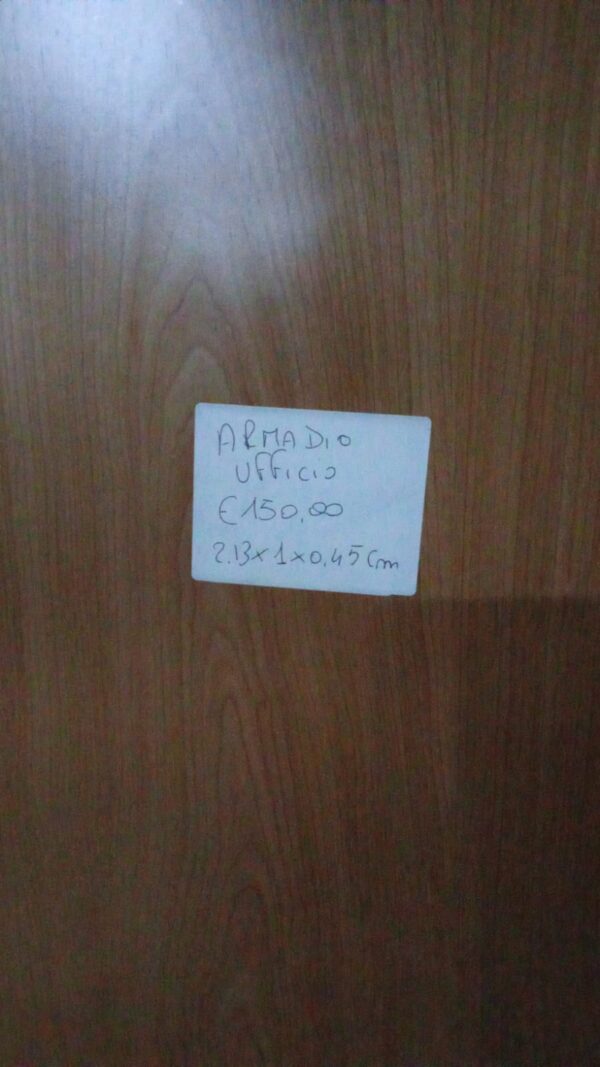 ARMADIO
UFFICIO
€ 150,00
2.13x1x0.45 cm